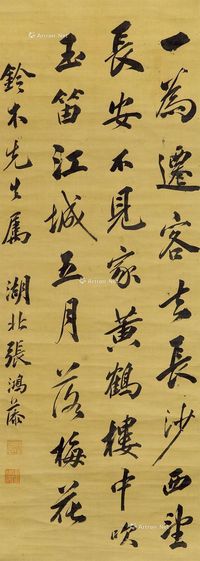 一為遷客去長沙西望
長安不見家黃鶴樓中吹
玉笛江城五月落梅花
鈴木先生属 湖北張鴻藻